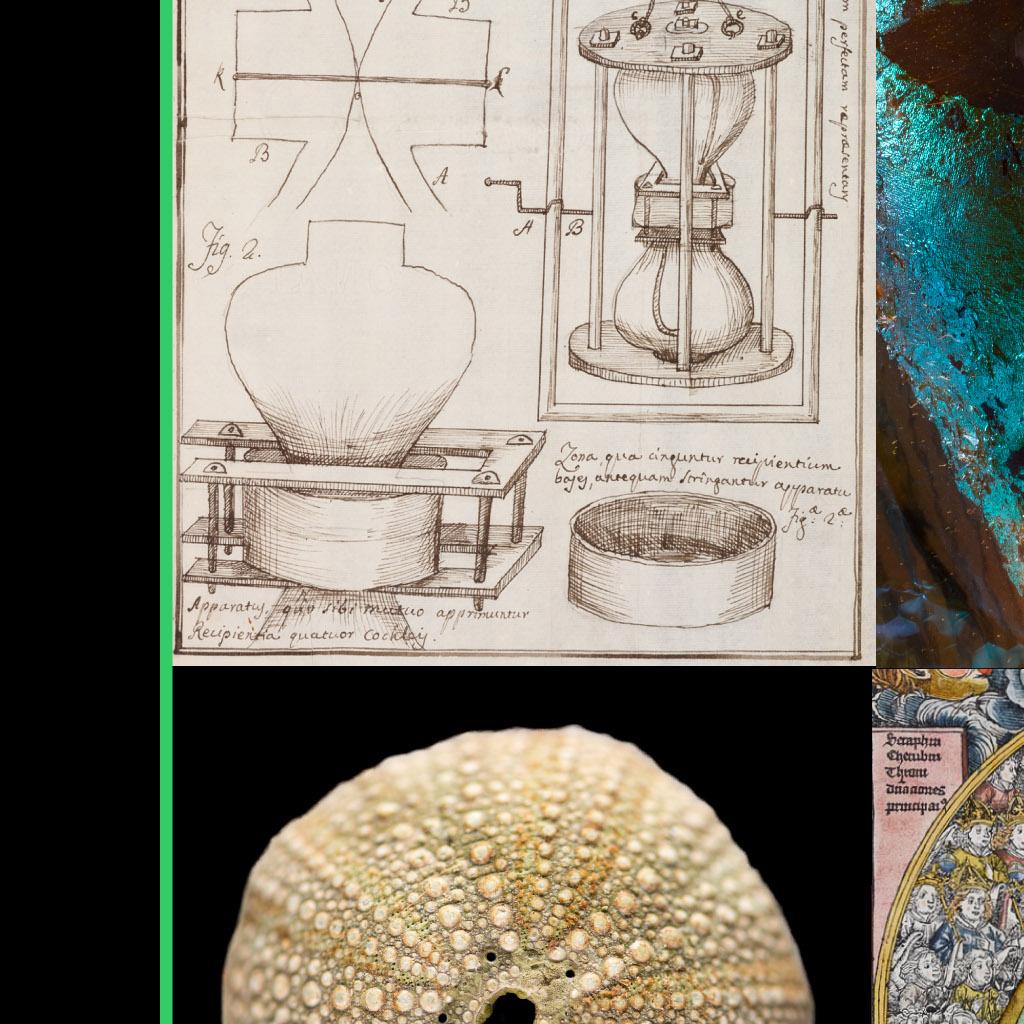 B
k
B
A
Fig. 2.
A B
m perfectam repræsentans
Zona qua cinguntur recipientium
bases, antequam stringantur apparatu
fig.æ 2.æ
Apparatus, quo sibi mutuo apprimuntur
Recipientia quatuor Cochleis.
Seraphin
Cherubin
Throni
principat⁹